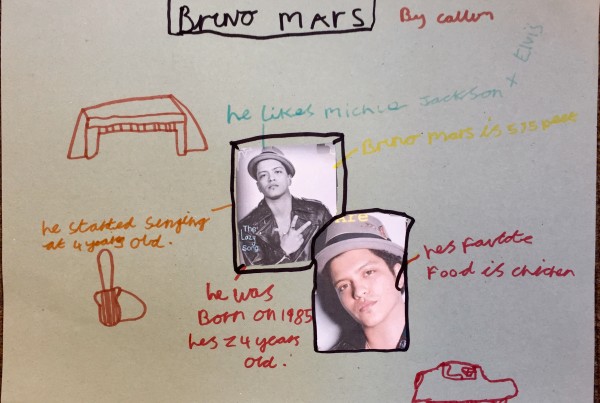 Bruno MARS
By callum
he likes Michle Jackson + Elvis
Bruno Mars is 5.35 peet
he started singing
at 4 years old.
The
Lazy
Song
hes favrote
Food is chicken
he was
Born on 1985
hes 24 years
old.